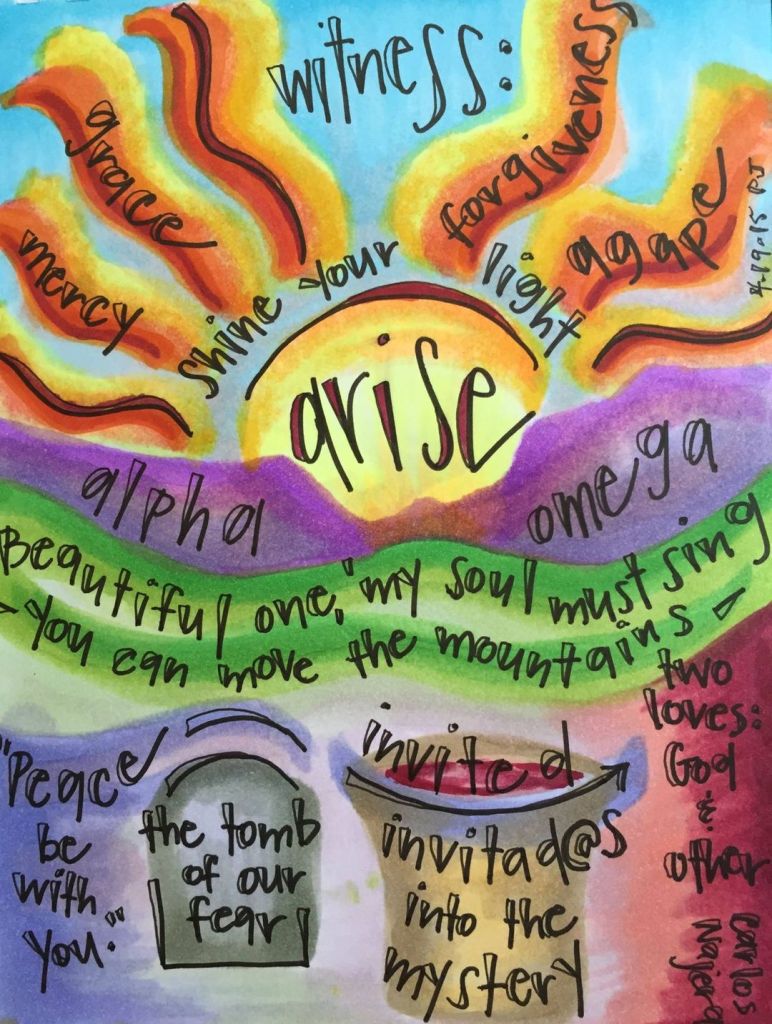 witness:
grace
forgiveness
mercy
agape
shine your light
arise
alpha
omega
Beautiful one, my soul must sing
- you can move the mountains -
"Peace
be
with
you."
the tomb
of our
fear
invited
invitad@s
into the
mystery
two
loves:
God
&
other
Carlos
Najera
4.19.15 PJ